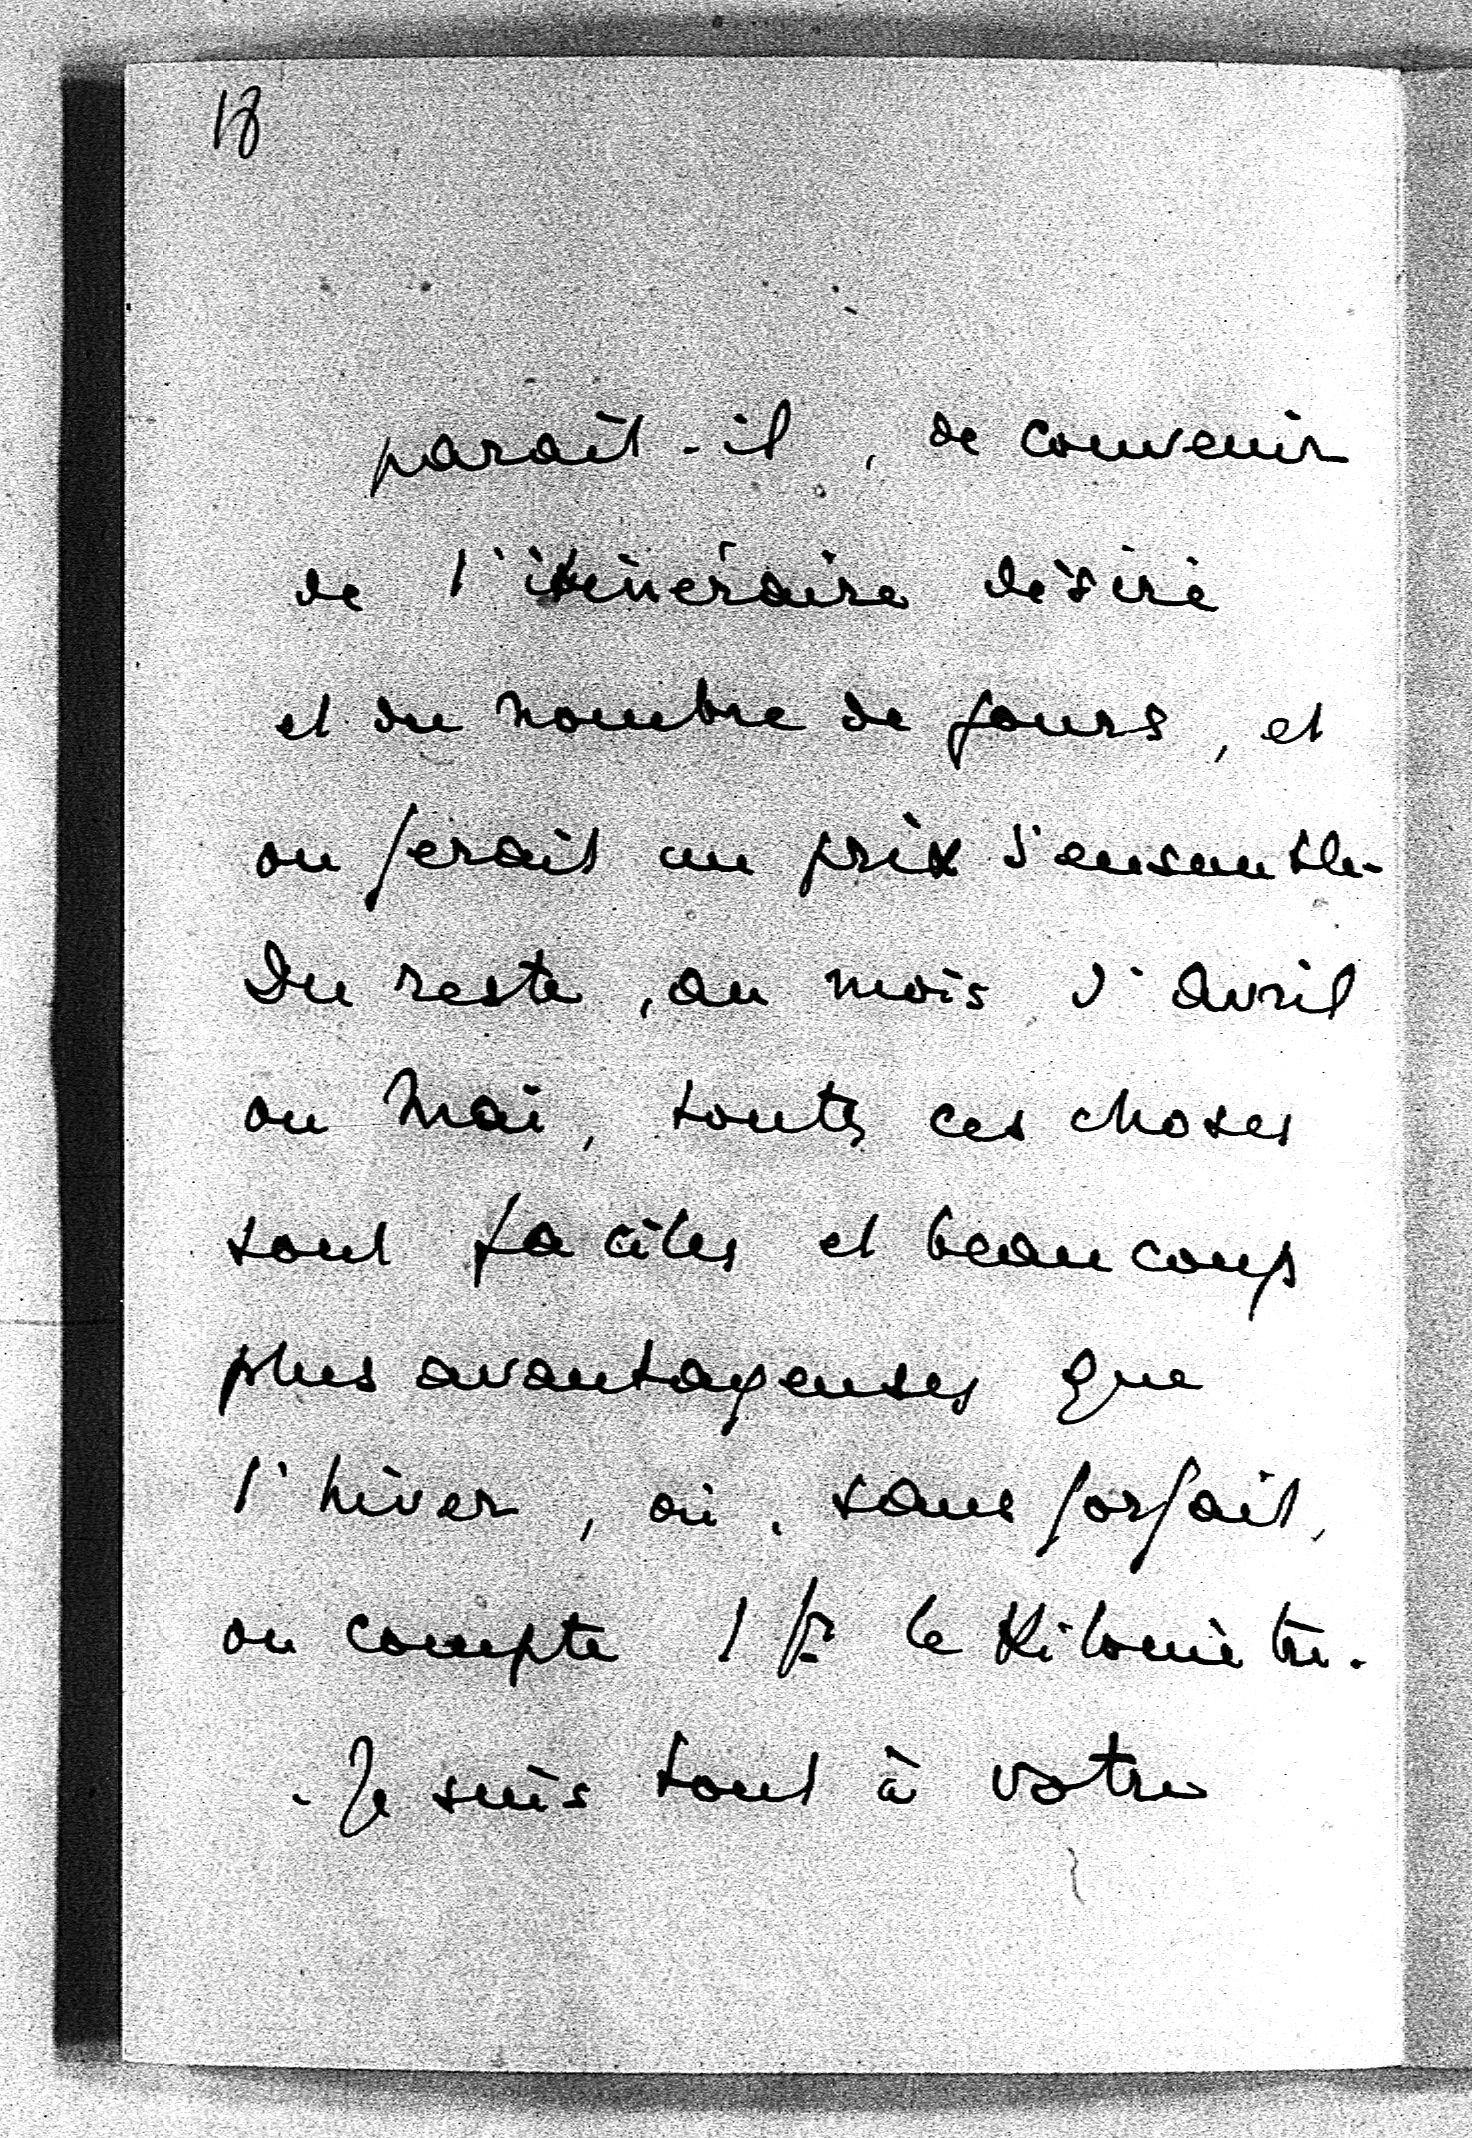 18
paraît-il, de convenir
de l'itinéraire désiré
et du nombre de jours, et
on ferait un prix d'ensemble.
Du reste, au mois d'avril
ou Mai, toutes ces choses
sont faciles et beaucoup
plus avantageuses que
l'hiver, où, sans forfait,
on compte 1 fr le Kilomètre.
. Je suis tout à votre